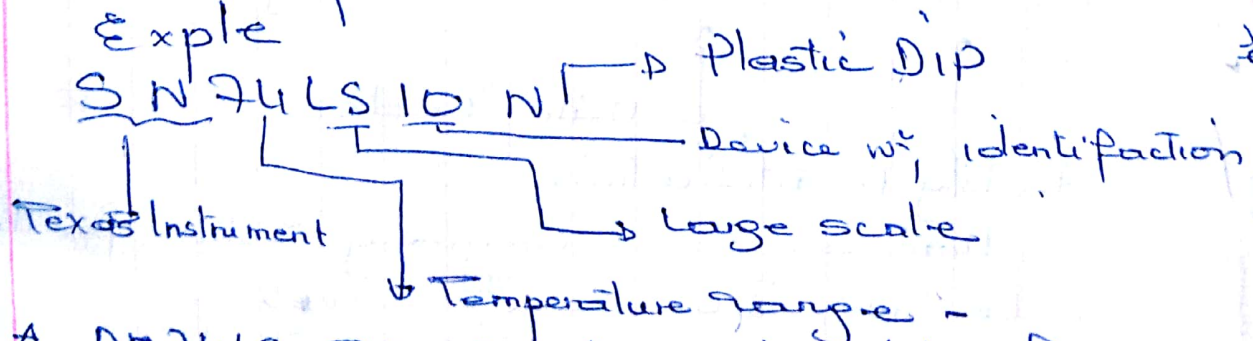 Exple
SN74LS10N → Plastic DIP
Device n°, identifaction
Texas Instrument
Large scale
Temperature range -